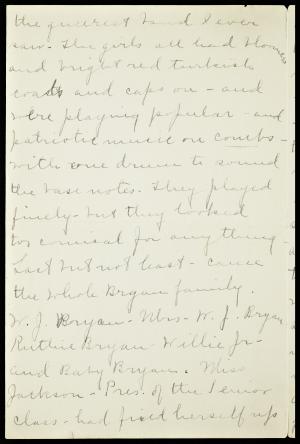 the queerest band I ever
saw - The girls all had bloomers
and bright red turkish
coats and caps on - and
were playing popular - and
patriotic music on combs -
with one drum to sound
the base notes. They played
finely - but they looked
too comical for anything -
Last but not least - came
the whole Bryan family.
W. J. Bryan - Mrs - W. J. Bryan
Ruthie Bryan Willie Jr -
and Baby Bryan. Miss
Jackson - Pres. of the Senior
class - had fixed herself up